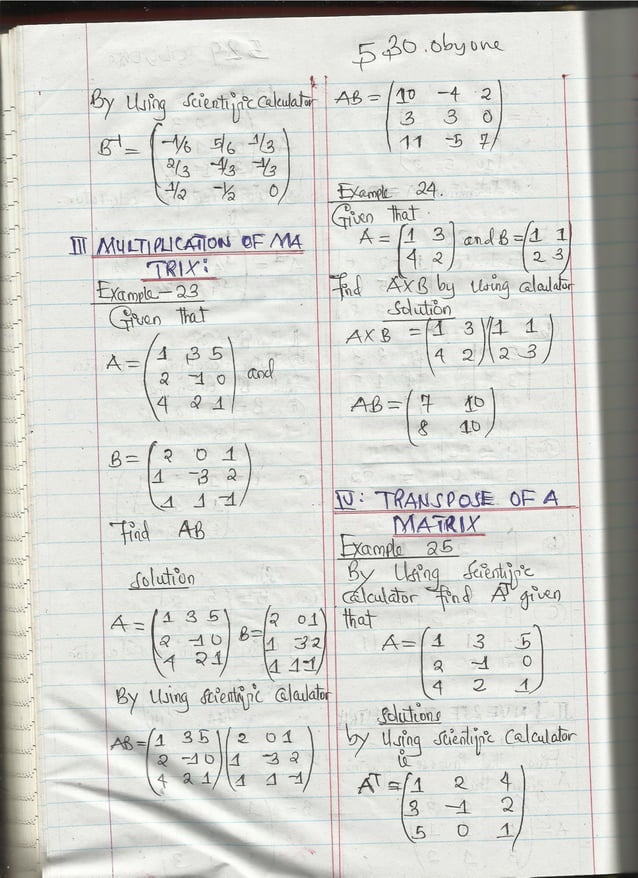 5.30. obyone
By Using Scientific Calculator
B⁻¹ = (-1/6 5/6 1/3
2/3 -1/3 -1/3
1/2 -1/2 0)
III MULTIPLICATION OF MA
TRIX:
Example - 23
Given that
A = (1 3 5
2 -1 0 and
4 2 1)
B = (2 0 1
1 -3 2
1 1 -1)
Find AB
Solution
A = (1 3 5
2 -1 0
4 2 1) B = (2 0 1
1 -3 2
1 1 -1)
By Using Scientific Calculator
AB = (1 3 5
2 -1 0
4 2 1) (2 0 1
1 -3 2
1 1 -1)
AB = (10 -4 2
3 3 0
11 -5 7)
Example 24.
Given that
A = (1 3
4 2) and B = (1 1
2 3)
Find AXB by Using calculator
Solution
AXB = (1 3
4 2) (1 1
2 3)
AB = (7 10
8 10)
IV: TRANSPOSE OF A
MATRIX
Example 25
By Using Scientific
Calculator Find Aᵀ given
that
A = (1 3 5
2 -1 0
4 2 1)
Solutions
by Using Scientific Calculator
is
Aᵀ = (1 2 4
3 -1 2
5 0 1)